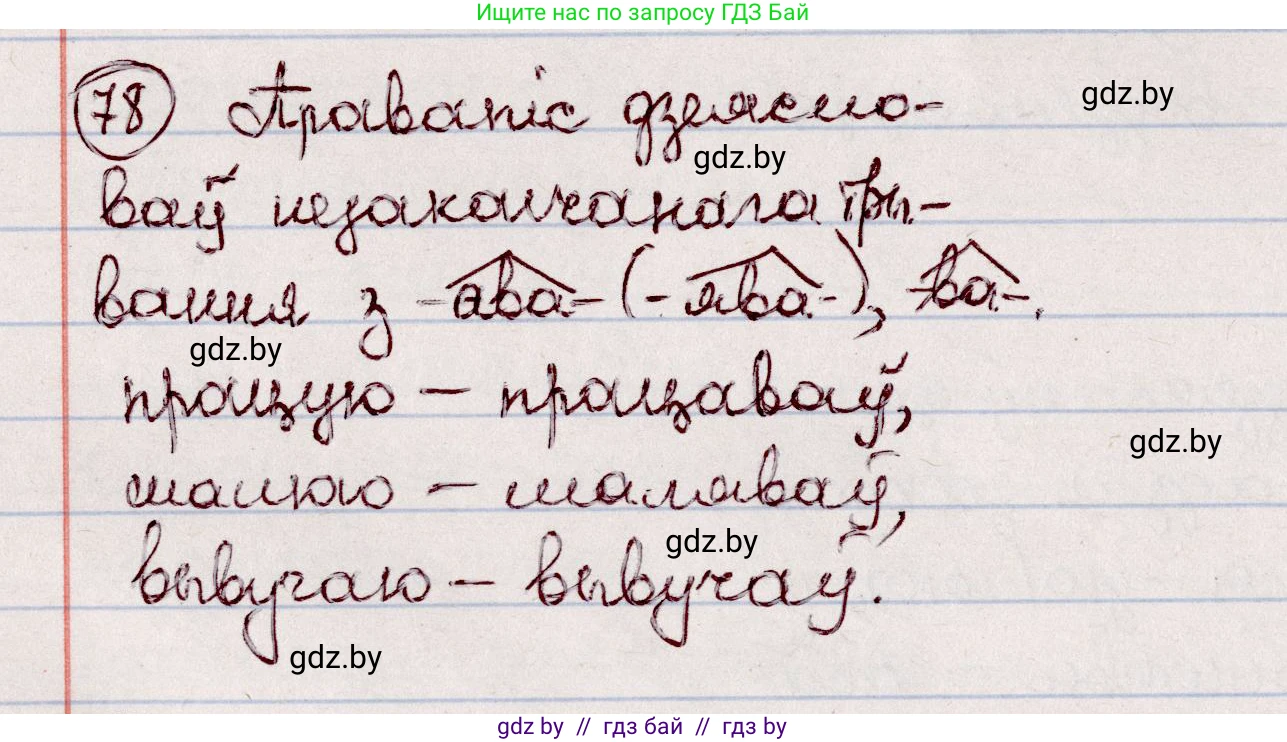 Ищите нас по запросу ГДЗ Бай
78 Правапіс дзеясло-
gdz.by
gdz.by
ваў незакончанага тры-
вання з -ава- (-ява-), -ва-.
gdz.by
працую – працаваў,
gdz.by
малюю – маляваў,
gdz.by
вывучаю – вывучаў.
gdz.by
gdz.by // гдз бай // гдз by